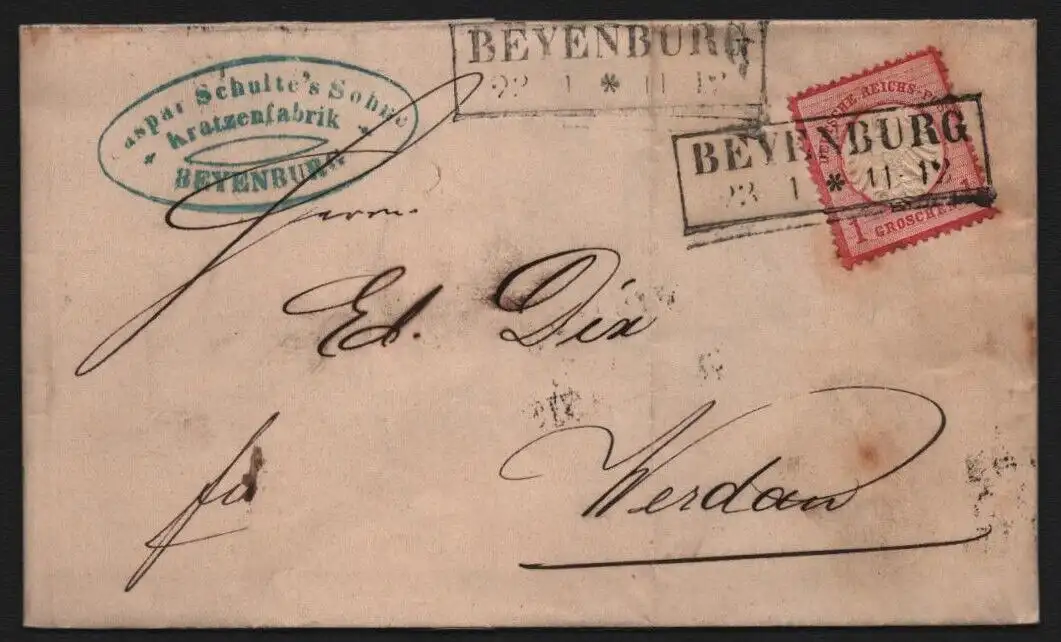 BEYENBURG
22 1 * 11-12
aspar Schulte's Söhne
Kratzenfabrik
BEYENBURG
DEUTSCHE REICHS-P
1 GROSCHE
BEYENBURG
23 1 * 11-12
Herrn
Ed. Dix
fr
Werdau